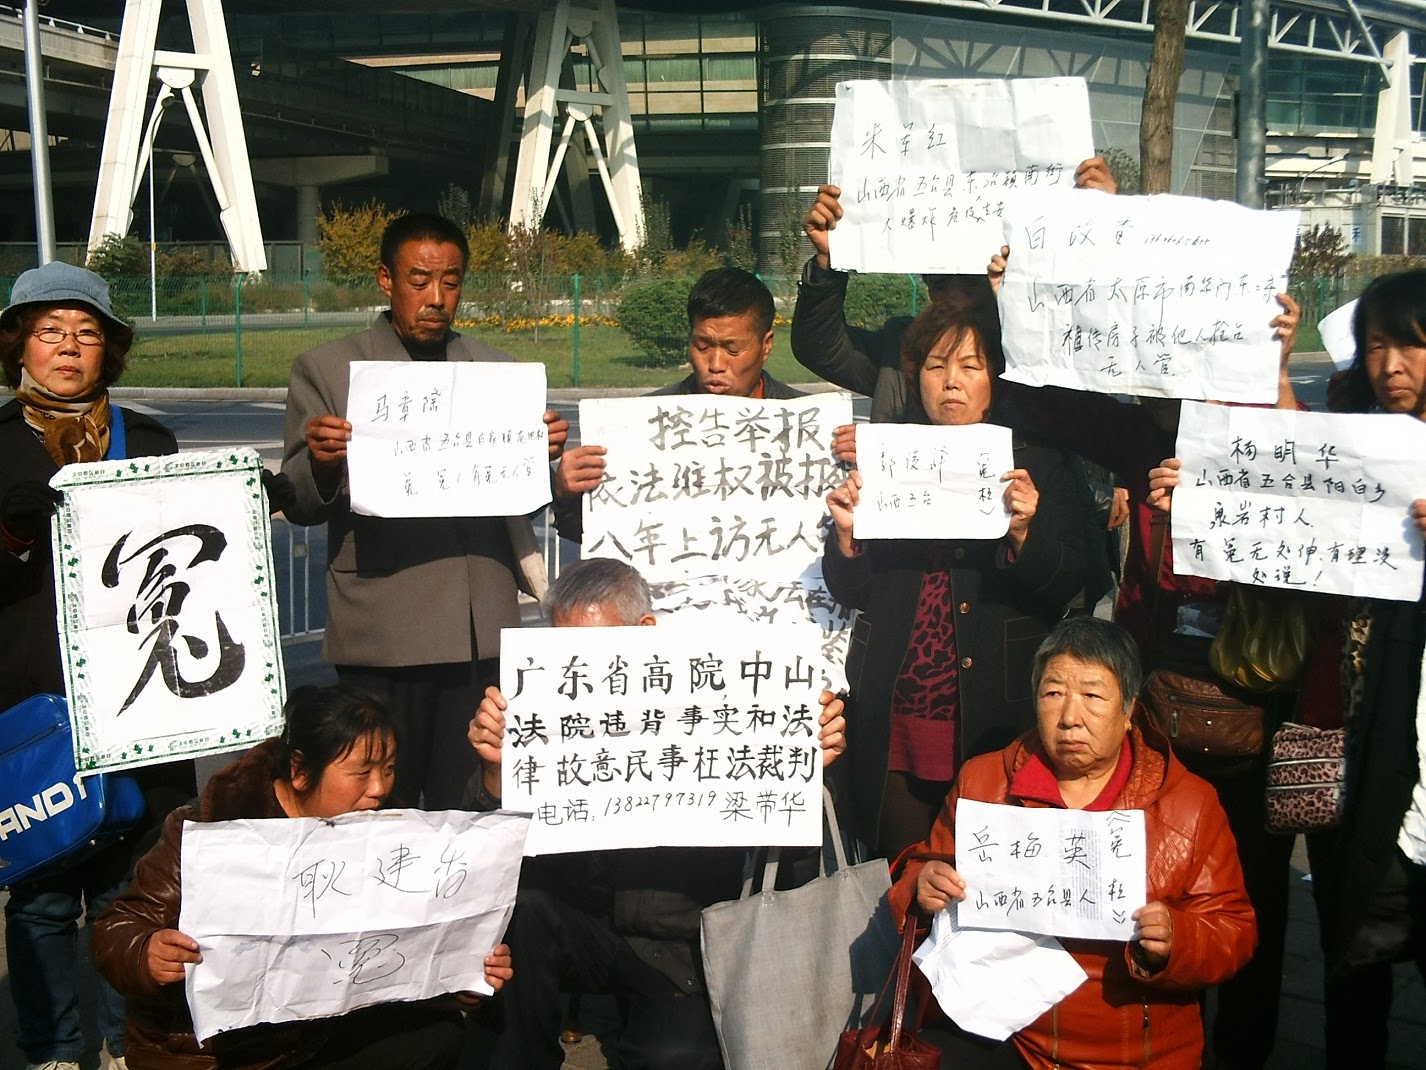 朱军红
山西省五台县东冶镇南街
白改黄
山西省太原市南华门东二条
祖传房子被他人抢占
无人管
马章隆
冤 冤！有冤无人管
控告举报
依法维权被报
八年上访无人
冤
郭俊婷 冤
山西五台 枉
杨明华
山西省五台县阳白乡
泉岩村人
有冤无处伸.有理没
处说！
广东省高院,中山
法院违背事实和法
律故意民事枉法裁判
电话:13822797319 梁带华
耿建香
冤
岳梅英 《冤
山西省五台县人 枉》
AND1